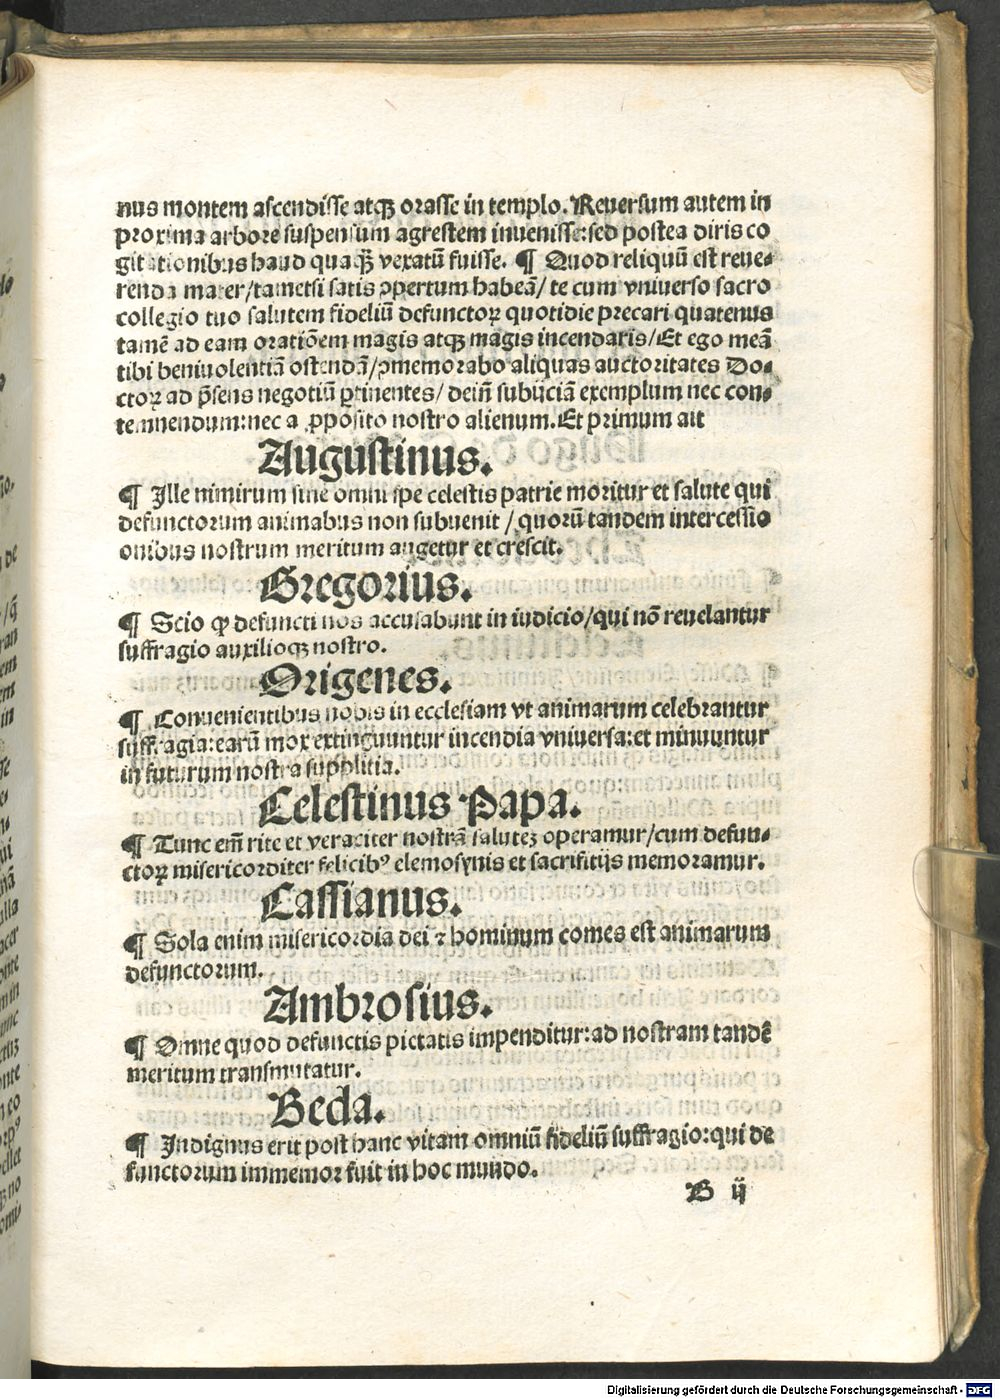 nus montem ascendisse atqꝫ orasse in templo. Reuersum autem in
proxima arbore suspensum agrestem inuenisse:sed postea diris co
gitationibus haud quaqꝫ̃ vexatũ fuisse. ¶ Quod reliquũ est reue⸗
renda mater/tametsi satis ꝯpertum habeã/ te cum vniuerso sacro
collegio tuo salutem fideliũ defunctoꝝ quotidie precari quatenus
tamẽ ad eam oratiõem magis atqꝫ magis incendaris/Et ego meã
tibi beniuolentiã ostendã/ꝯmemorabo aliquas auctoritates Do⸗
ctoꝝ ad p̃sens negotiũ ꝑtinentes/ deiñ subijciã exemplum nec con⸗
temnendum:nec a ꝓposito nostro alienum. Et primum ait
Augustinus.
¶ Ille nimirum sine omni spe celestis patrie moritur et salute qui
defunctorum animabus non subuenit / quorũ tandem intercessio
onibus nostrum meritum augetur et crescit.
Gregorius.
¶ Scio ꝙ defuncti nos accusabunt in iudicio/qui nõ reuelantur
suffragio auxilioqꝫ nostro.
Origenes.
¶ Conuenientibus nobis in ecclesiam vt animarum celebrantur
suffragia:earũ mox extinguuntur incendia vniuersa:et minuuntur
in futurum nostra supplitia.
Celestinus Papa.
¶ Tunc em̃ rite et veraciter nostrã saluteꝫ operamur/cum defun⸗
ctoꝝ misericorditer felicibꝰ elemosynis et sacrifitijs memoramur.
Cassianus.
¶ Sola enim misericordia dei ⁊ hominum comes est animarum
defunctorum.
Ambrosius.
¶ Omne quod defunctis pietatis impenditur:ad nostram tandẽ
meritum transmutatur.
Beda.
¶ Indignus erit post hanc vitam omniũ fideliũ suffragio:qui de
functorum immemor fuit in hoc mundo.
B ij
Digitalisierung gefördert durch die Deutsche Forschungsgemeinschaft - DFG